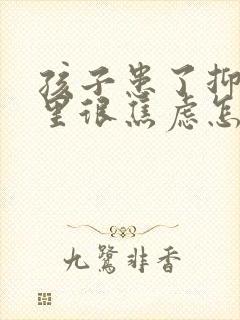 孩子患了抑
里很焦虑怎
九鹭非香